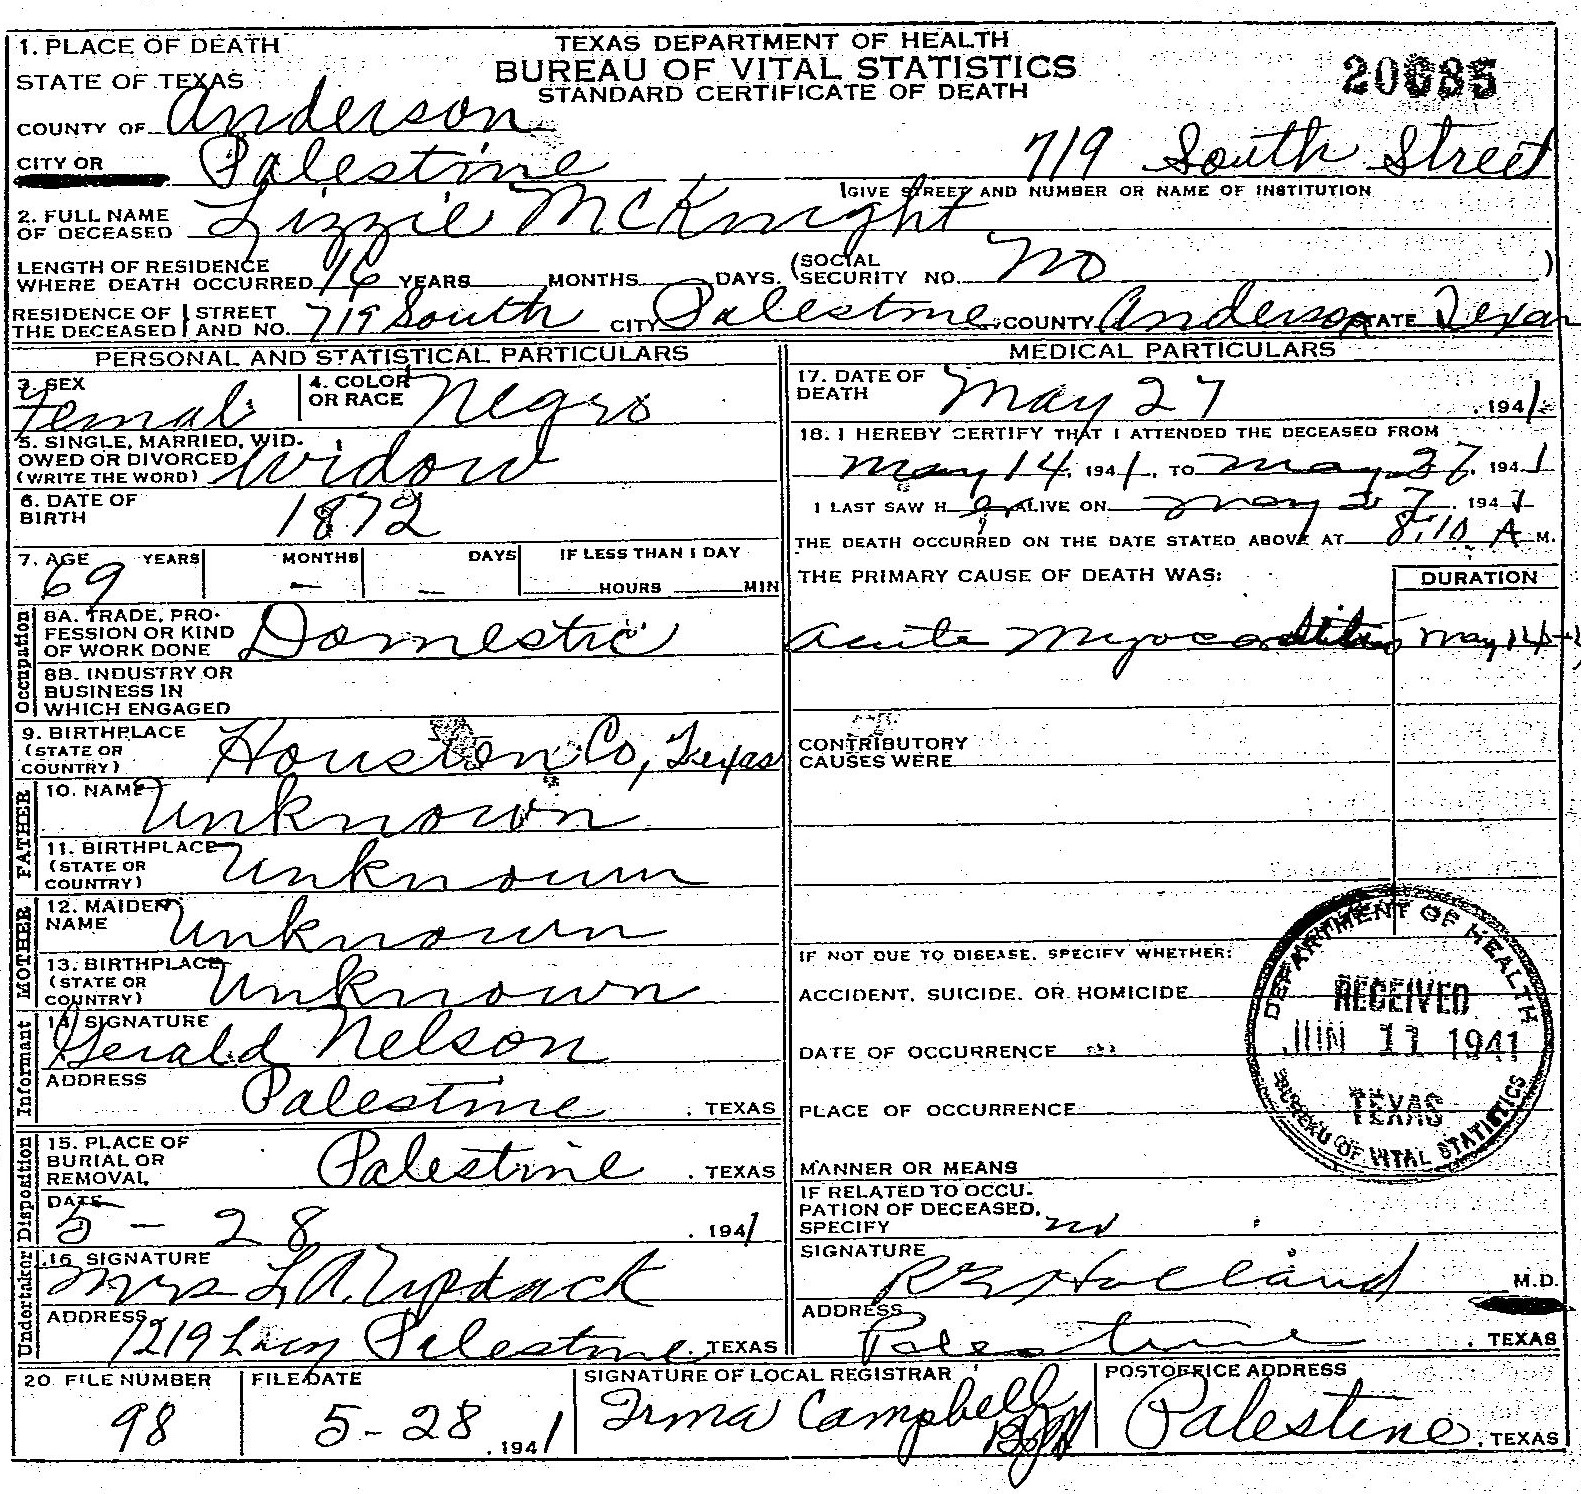 1. PLACE OF DEATH
TEXAS DEPARTMENT OF HEALTH
BUREAU OF VITAL STATISTICS
STANDARD CERTIFICATE OF DEATH
STATE OF TEXAS
COUNTY OF Anderson
CITY OR Palestine 719 South Street
GIVE STREET AND NUMBER OR NAME OF INSTITUTION
2. FULL NAME OF DECEASED Lizzie McKnight
LENGTH OF RESIDENCE WHERE DEATH OCCURRED 16 YEARS MONTHS DAYS. (SOCIAL SECURITY NO. No )
RESIDENCE OF THE DECEASED STREET AND NO. 719 South CITY Palestine COUNTY Anderson STATE Texas
PERSONAL AND STATISTICAL PARTICULARS
3. SEX Femal
4. COLOR OR RACE Negro
5. SINGLE, MARRIED, WID-
OWED OR DIVORCED
(WRITE THE WORD) Widow
6. DATE OF BIRTH 1872
7. AGE YEARS MONTHS DAYS IF LESS THAN 1 DAY
69 - - HOURS MIN
Occupation
8A. TRADE, PRO-
FESSION OR KIND
OF WORK DONE Domestic
8B. INDUSTRY OR
BUSINESS IN
WHICH ENGAGED
9. BIRTHPLACE
(STATE OR
COUNTRY) Houston Co, Texas
FATHER
10. NAME Unknown
11. BIRTHPLACE
(STATE OR
COUNTRY) Unknown
MOTHER
12. MAIDEN
NAME Unknown
13. BIRTHPLACE
(STATE OR
COUNTRY) Unknown
Informant
14. SIGNATURE
Gerald Nelson
ADDRESS
Palestine . TEXAS
Disposition
15. PLACE OF
BURIAL OR
REMOVAL, Palestine . TEXAS
DATE
5 - 28 . 1941
Undertaker
16 SIGNATURE
Mrs L A. Updack
ADDRESS
1219 Lacy Palestine . TEXAS
MEDICAL PARTICULARS
17. DATE OF
DEATH May 27 . 1941
18. I HEREBY CERTIFY THAT I ATTENDED THE DECEASED FROM
May 14, 1941. TO May 27, 1941
I LAST SAW H er ALIVE ON May 27, 1941
THE DEATH OCCURRED ON THE DATE STATED ABOVE AT 8:10 A M.
THE PRIMARY CAUSE OF DEATH WAS: DURATION
Acute Myocarditis May 14
CONTRIBUTORY
CAUSES WERE
IF NOT DUE TO DISEASE, SPECIFY WHETHER:
ACCIDENT, SUICIDE, OR HOMICIDE
DATE OF OCCURRENCE
PLACE OF OCCURRENCE
MANNER OR MEANS
IF RELATED TO OCCU-
PATION OF DECEASED,
SPECIFY no
SIGNATURE
Holland M.D.
ADDRESS
Palestine . TEXAS
DEPARTMENT OF HEALTH
RECEIVED
JUN 11 1941
TEXAS
BUREAU OF VITAL STATISTICS
20. FILE NUMBER
98
FILE DATE
5-28 . 1941
SIGNATURE OF LOCAL REGISTRAR
Irma Campbell
POSTOFFICE ADDRESS
Palestine . TEXAS